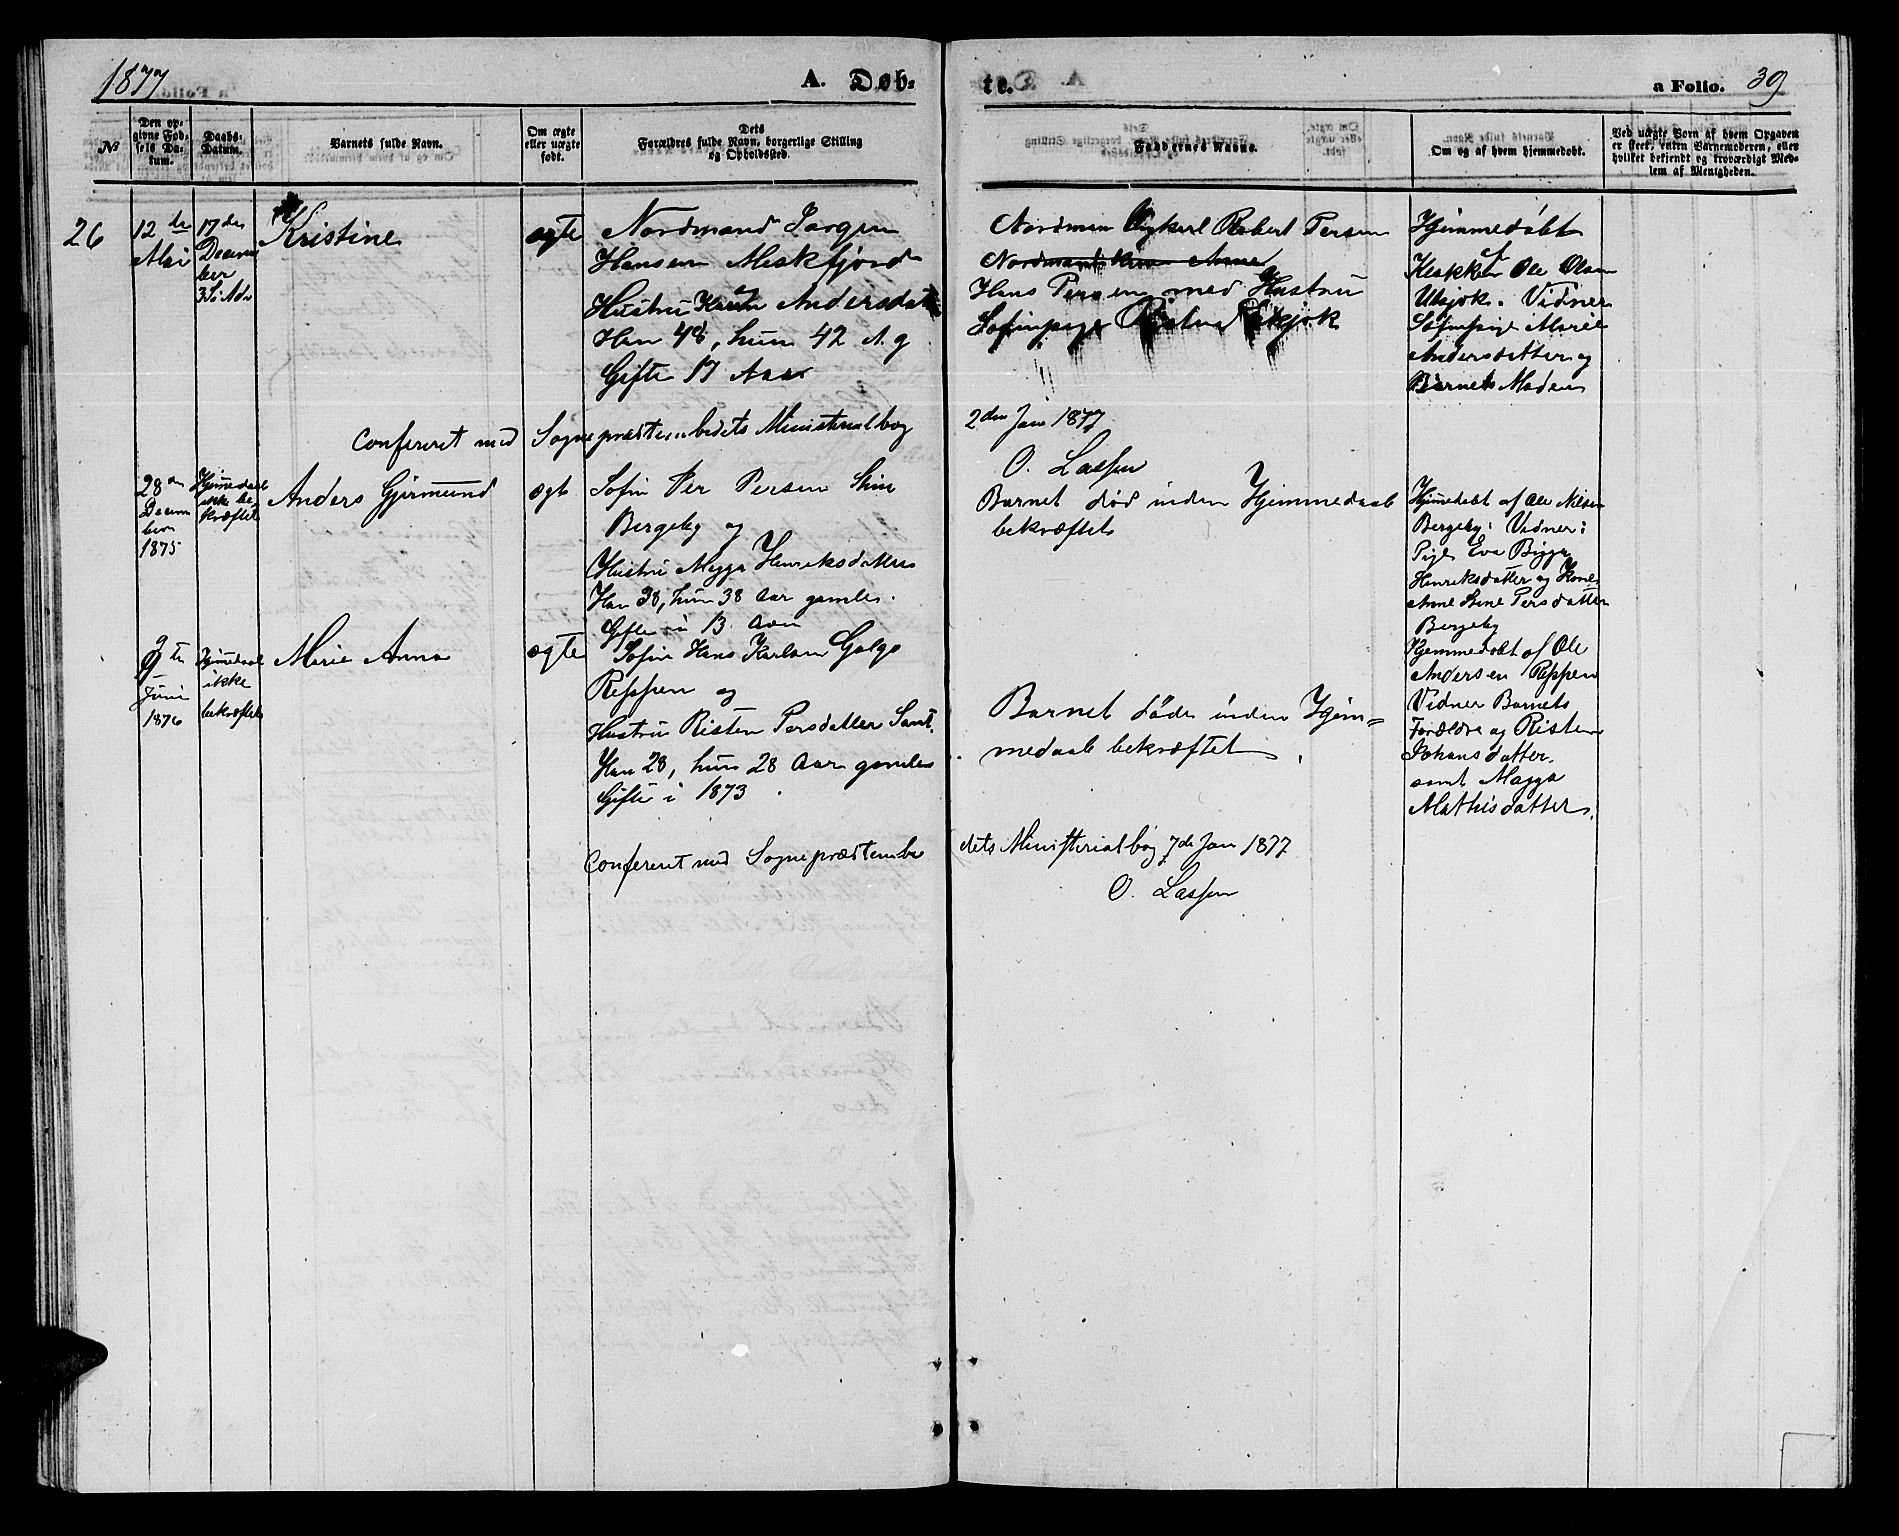 1877
A. Døb-
te.
a Folio. 39
№
Den op-
givne Fød-
sels Da-
tum.
Daabs-
Datum.
Barnets fulde Navn.
Om ægte
eller uægte
født.
Dets
Forældres fulde Navn, borgerlige Stilling
og Opholdssted.
Faddernes Navne.
Om og af hvem hjemmedøbt.
Ved uægte Børn af hvem Opgaven
er skeet, enten Barnemoderen, eller
hvilket bekjendt og troværdigt Med-
lem af Menigheden.
26
12te
Mai
17de
Decem
ber
3 S. i Adv
Kristine
ægte
Nordmand Jørgen
Hansen Meskfjord
Hustru Karen Andersdat
Han 48, hun 42 A. g
Gifte 17 Aar
Nordmen Ungkarl Robert Persen
Hans Persen med Hustru
Hjemmedøbt
af
Ole Olsen
Utsjok. Vidner
Søfinpige Marie
Andersdatter og
Barnets Moder
Confereret med Sognepræstembedets Ministerialbog
2den Jan 1877
O. Lassen
28de
Decem
ber
1875
Hjemmedaab
ikke be
kræftet
Anders Gjermund
ægte
Søfin Per Persen
Bergeby og
Hustru Magga Henriksdatter
Han 38, hun 38 Aar gamle.
Gifte i 13 Aar
Barnet død inden Hjemmedaab
bekræftet
Hjemmedøbt af Ole Nilsen
Bergeby: Vidner:
Pige Eva Bigga
Henriksdatter og Kone
Anne Persdatter
Bergeby
9de
Juni
1876
Hjemmedaab
ikke
bekræftet
Marie Anna
ægte
Søfin Hans Karlsen Galgo
Reppen og
Hustru Risten Persdatter
Han 28, hun 28 Aar gamle
Gifte i 1873
Barnet døde inden Hjem=
medaab bekræftet
Hjemmedøbt af Ole
Andersen Reppen
Vidner Barnets
Forældre og Risten
Johansdatter
samt Magga
Mathisdatter.
Confereret med Sognepræstembe
dets Ministerialbog 7de Jan 1877
O. Lassen